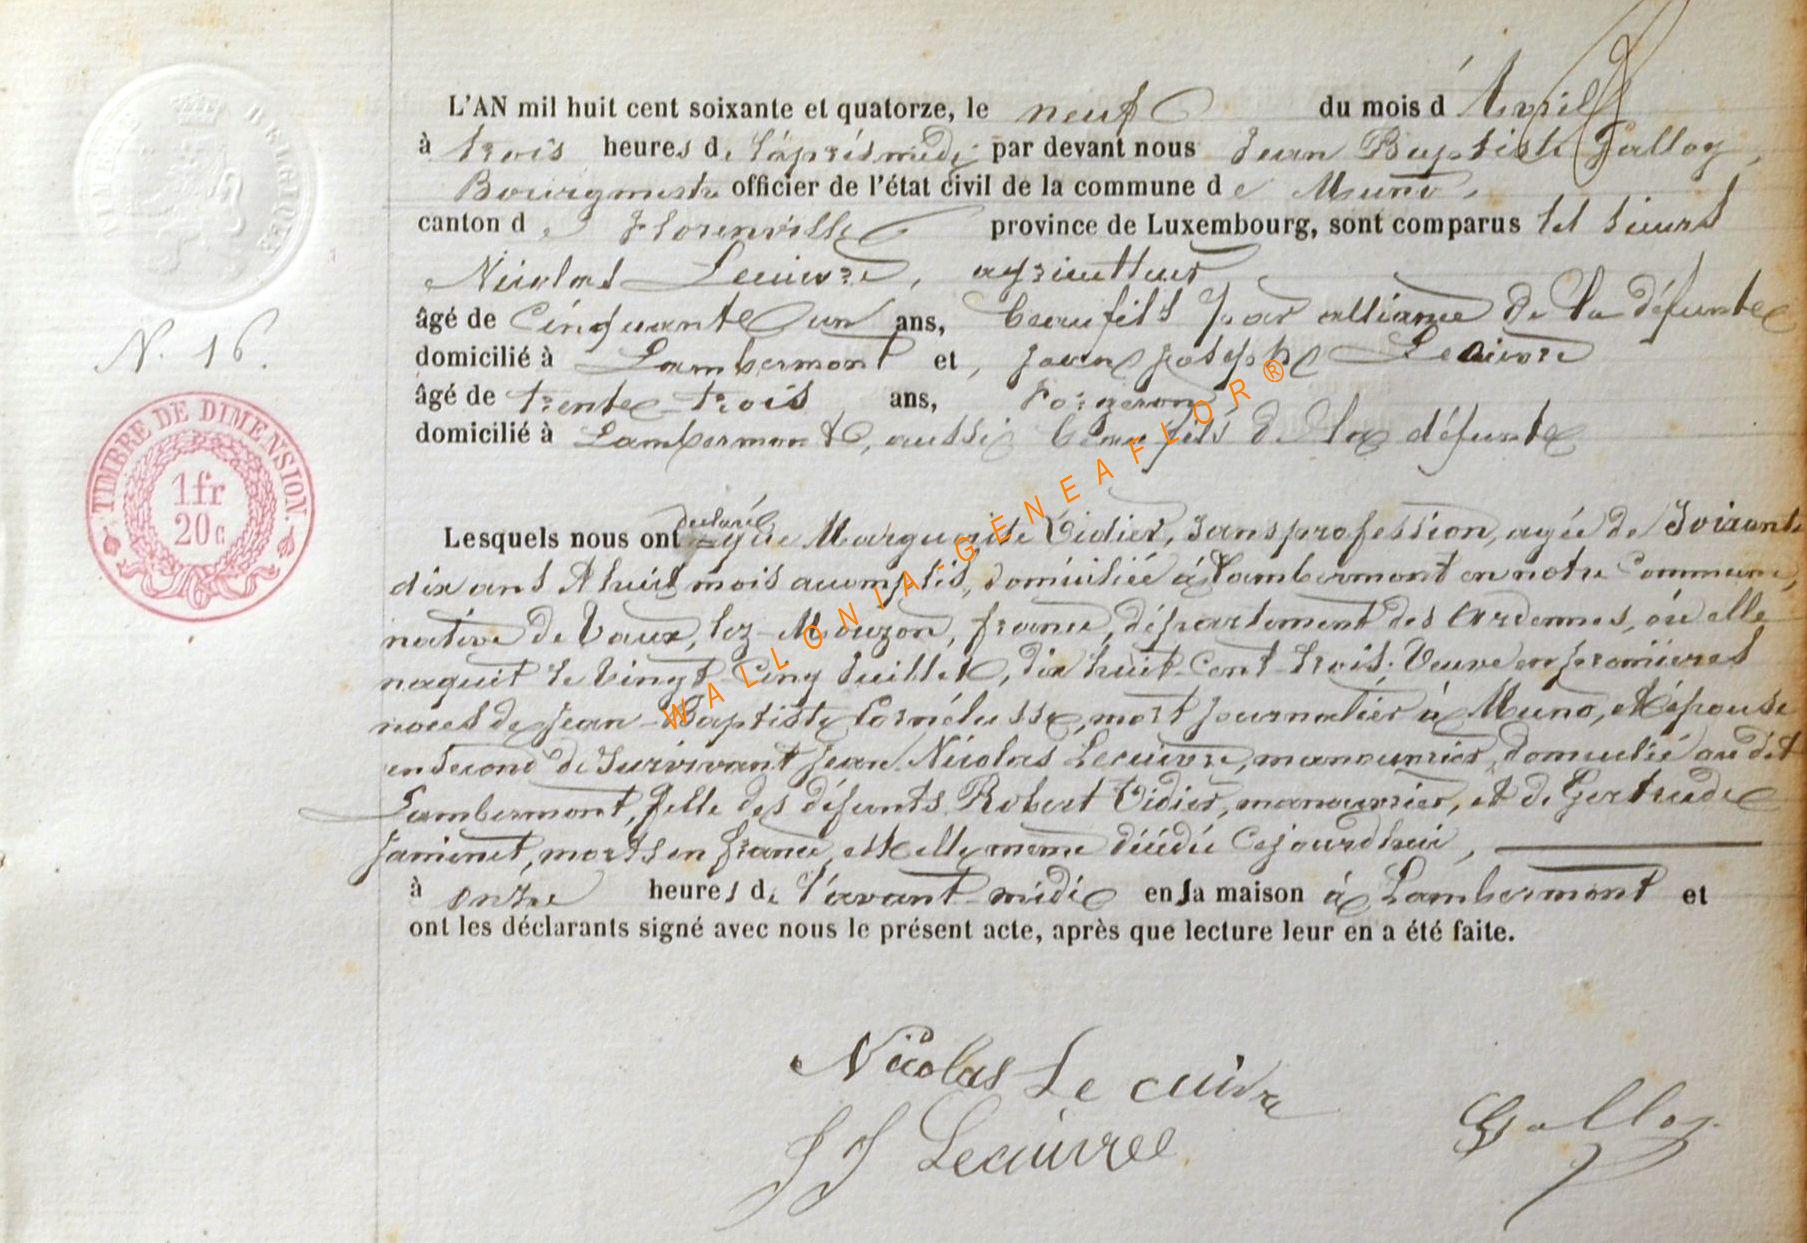 L'AN mil huit cent soixante et quatorze, le neuf du mois d'Avril
à trois heures de l'après midi par devant nous Jean Baptiste Galloy,
Bourgmestre officier de l'état civil de la commune de Muno,
canton de Florenville province de Luxembourg, sont comparus les sieurs
Nicolas Lecuivre, agriculteur
âgé de Cinquante un ans, beau fils par alliance de la défunte
N. 16.
domicilié à Lambermont et, Jean Joseph Lecuivre
âgé de trente trois ans, Forgeron
domicilié à Lambermont, aussi beau fils de la défunte
TIMBRE DE DIMENSION.
1 fr
20 c
WALLONIA-GENEAFLOR®
déclaré
Lesquels nous ont que Marguerite Didier, Sans profession, agée de Soixante
dix ans & huit mois accomplis, domiciliée à Lambermont en notre Commune,
native de Vaux, lez-Mouzon, france, département des Ardennes, où elle
naquit le Vingt-Cinq Juillet, dix huit-Cent-trois. Veuve en premières
noces de Jean-Baptiste Cornélusse, mort journalier à Muno, et épouse
en second de Survivant Jean Nicolas Lecuivre, manouvrier, domicilié au dit
Lambermont, fille des défunts Robert Didier, manouvrier, et de Gertrude
Jaminet, morts en france, est elle même décédée Cejourd'hui,
à onze heures de l'avant-midi en sa maison à Lambermont et
ont les déclarants signé avec nous le présent acte, après que lecture leur en a été faite.
Nicolas Le cuivre
JJ Lecuivre
Galloy